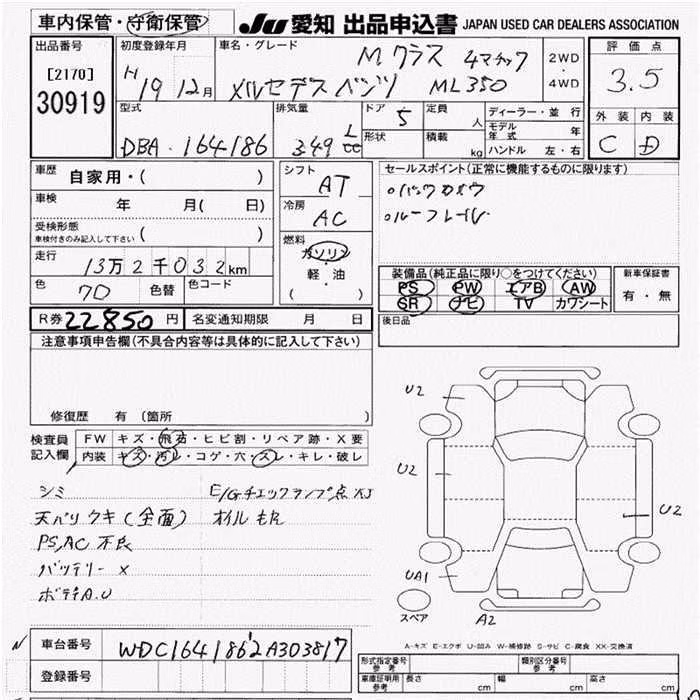 車内保管・守衛保管
JU 愛知 出品申込書 JAPAN USED CAR DEALERS ASSOCIATION
出品番号
[2170]
30919
初度登録年月
H19 12月
車名・グレード
Mクラス 4マチック
メルセデスベンツ ML350
2WD
・
4WD
評価点
3.5
外装 内装
C D
型式
DBA・164186
排気量
3.49 L
cc
ドア・
形状
5
定員 人
積載 kg
ディーラー・並行
モデル年式 年
ハンドル 左・右
車歴 自家用・( )
車検 年 月( 日)
受検形態
車検付きのみ記入して下さい ( )
走行
13万2千032km
色 70 色替 色コード
シフト
AT
冷房
AC
燃料
ガソリン
・
軽・油
( )
セールスポイント(正常に機能するものに限ります)
○バックカメラ
○ルーフレール
装備品(純正品に限り○をつけてください)
PS PW エアB AW
SR ナビ TV カワシート
新車保証書
有・無
R券 22850円 名変通知期限 月 日
後日品
注意事項申告欄(不具合内容等は具体的に記入して下さい)
修復歴 有(箇所 )
検査員
記入欄
FW キズ・飛石・ヒビ割・リペア跡・X要
内装 キズ・汚レ・コゲ・穴・スレ・キレ・破レ
シミ E/Gチェックランプ点灯
天バリウキ(全面) オイルもれ
PS,AC 不良
バッテリー ×
ボデーA.U
U2
U2
U2
UA1
A2
スペア
A-キズ E-エクボ U-凹み W-補修跡 S-サビ C-腐食 XX-交換済
車台番号 WDC1641862A303817
登録番号
形式指定番号
参考
類別区分番号
参考
車庫証明用
参考
長さ cm 幅 cm 高さ cm